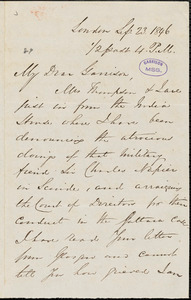 London Sep 23. 1846
1/2 past 4 P.M.
GARRISON
MSS.
My Dear Garrison,
Mrs Thompson & I are
just in from the India
House where I have been
denouncing the atrocious
doings of that military
fiend Sir Charles Napier
in Scinde, and arraigning
the Court of Directors for their
conduct in the Sattara Case
I have read your letter
from Glasgow and cannot
tell you how grieved I am